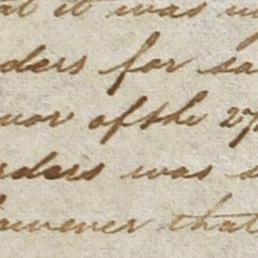 at it was
ders for sa
vor of the 27
rders was s
however that